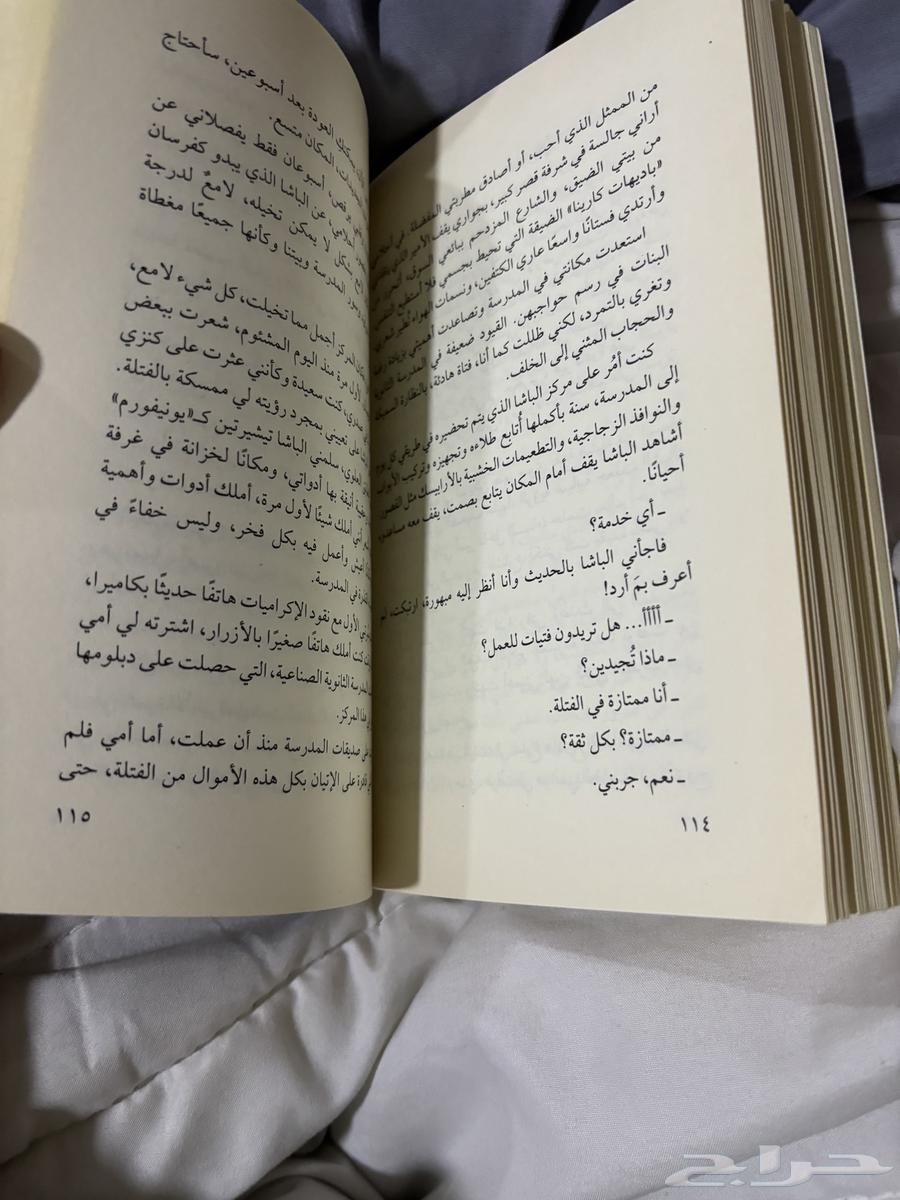 من الممثل الذي أحب، أو أصادق مطربتي المفضلة. في
أراني جالسة في شرفة قصر كبير، بجواري يقف الأمير الذي
من بيتي الضيق، والشارع المزدحم ببائعي السوق،
«باديهات كارينا» الضيقة التي تحيط بجسمي فلا أستطيع التنفس
وأرتدي فستانًا واسعًا عاري الكتفين، ونسمات الهواء تطير شعري
استعدت مكانتي في المدرسة وتصاعدت أهميتي بزيادة
البنات في رسم حواجبهن. القيود ضعيفة في المدرسة الثانوية
وتغري بالتمرد، لكني ظللت كما أنا، فتاة هادئة، بالنظارة السميكة
والحجاب المثني إلى الخلف.
كنت أمُر على مركز الباشا الذي يتم تحضيره في طريقي كل يوم
إلى المدرسة، سنة بأكملها أُتابع طلاءه وتجهيزه وتركيب الأبواب
والنوافذ الزجاجية، والتطعيمات الخشبية بالأرابيسك مثل القصور
أشاهد الباشا يقف أمام المكان يتابع بصمت، يقف معه مساعدوه
أحيانًا.
ـ أي خدمة؟
فاجأني الباشا بالحديث وأنا أنظر إليه مبهورة، ارتبكت، لم
أعرف بمَ أرد!
ـ أأأأ... هل تريدون فتيات للعمل؟
ـ ماذا تُجيدين؟
ـ أنا ممتازة في الفتلة.
ـ ممتازة؟ بكل ثقة؟
ـ نعم، جربني.
١١٤
يمكنك العودة بعد أسبوعين، سأحتاج
المكان متسع.
أسبوعان فقط يفصلاني عن
عن الباشا الذي يبدو كفرسان
بشكل لا يمكن تخيله، لامعٌ لدرجة
المدرسة وبيتنا وكأنها جميعًا مغطاة
المركز أجمل مما تخيلت، كل شيء لامع،
لأول مرة منذ اليوم المشئوم، شعرت ببعض
كنت سعيدة وكأنني عثرت على كنزي
بمجرد رؤيته لي ممسكة بالفتلة.
العلوي، سلمني الباشا تيشيرتين كـ«يونيفورم»
أنيقة بها أدواتي، ومكانًا لخزانة في غرفة
أني أملك شيئًا لأول مرة، أملك أدوات وأهمية
أعيش وأعمل فيه بكل فخر، وليس خفاءً في
في المدرسة.
الأول مع نقود الإكراميات هاتفًا حديثًا بكاميرا،
كنت أملك هاتفًا صغيرًا بالأزرار، اشترته لي أمي
المدرسة الثانوية الصناعية، التي حصلت على دبلومها
هذا المركز.
صديقات المدرسة منذ أن عملت، أما أمي فلم
على الإتيان بكل هذه الأموال من الفتلة، حتى
١١٥
حراج